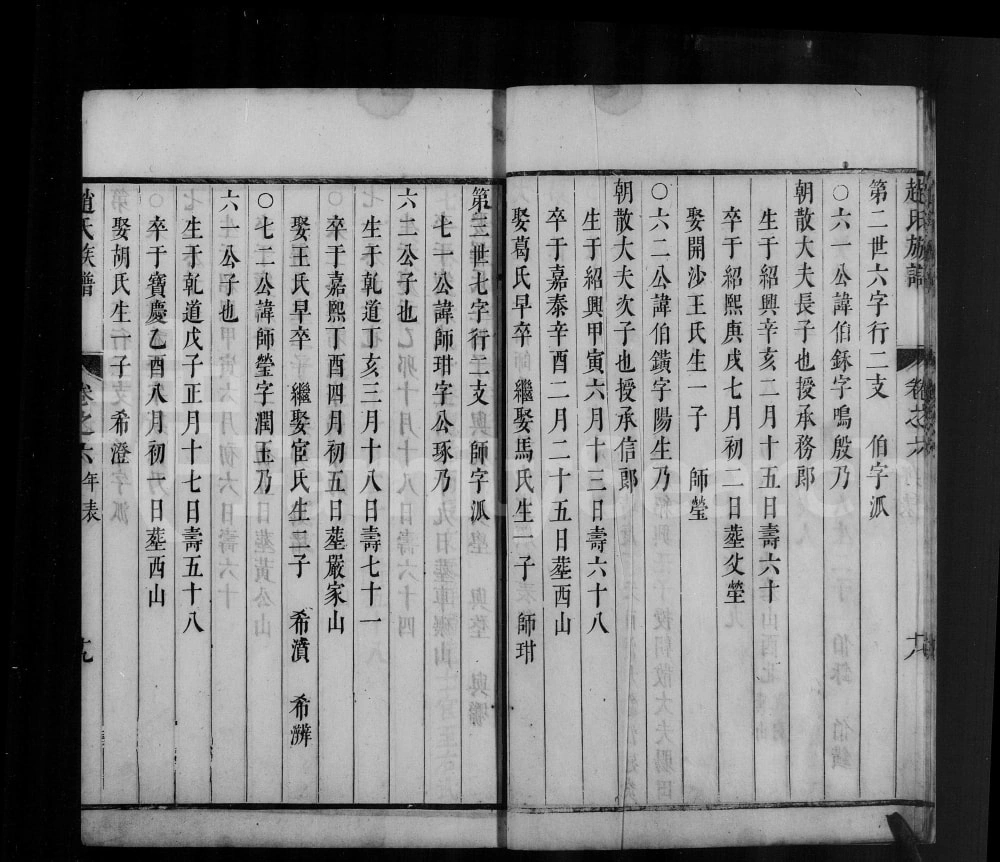 趙氏族譜
卷之六
十八
第二世六字行二支 伯字派
○六一公諱伯鉌字鳴殷乃
朝散大夫長子也授承務郎
生于紹興辛亥二月十五日壽六十
卒于紹熙庚戌七月初二日塟父塋
娶開沙王氏生一子 師瑩
○六二公諱伯鐄字陽生乃
朝散大夫次子也授承信郎
生于紹興甲寅六月十三日壽六十八
卒于嘉泰辛酉二月二十五日塟西山
娶葛氏早卒 繼娶馬氏生一子 師玵
第三世七字行二支 師字派
七一公諱師玵字公琢乃
六二公子也
生于乾道丁亥三月十八日壽七十一
卒于嘉熙丁酉四月初五日塟嚴家山
娶王氏早卒 繼娶宦氏生二子 希濆 希㴜
○七二公諱師瑩字潤玉乃
六一公子也
生于乾道戊子正月十七日壽五十八
卒于寶慶乙酉八月初一日塟西山
娶胡氏生一子 希澄
趙氏族譜
卷之六 年表
十九